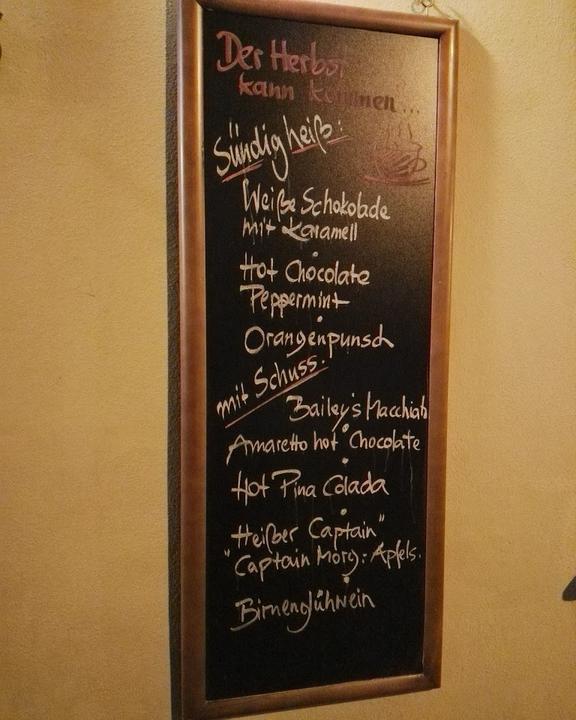 Der Herbst
kann kommen...
Sündig heiß:
Weiße Schokolade
mit Karamell
Hot Chocolate
Peppermint
Orangenpunsch
mit Schuss:
Bailey's Macchiato
Amaretto hot Chocolate
Hot Pina Colada
Heißer Captain"
"Captain Morg. Apfels.
Birnenglühwein